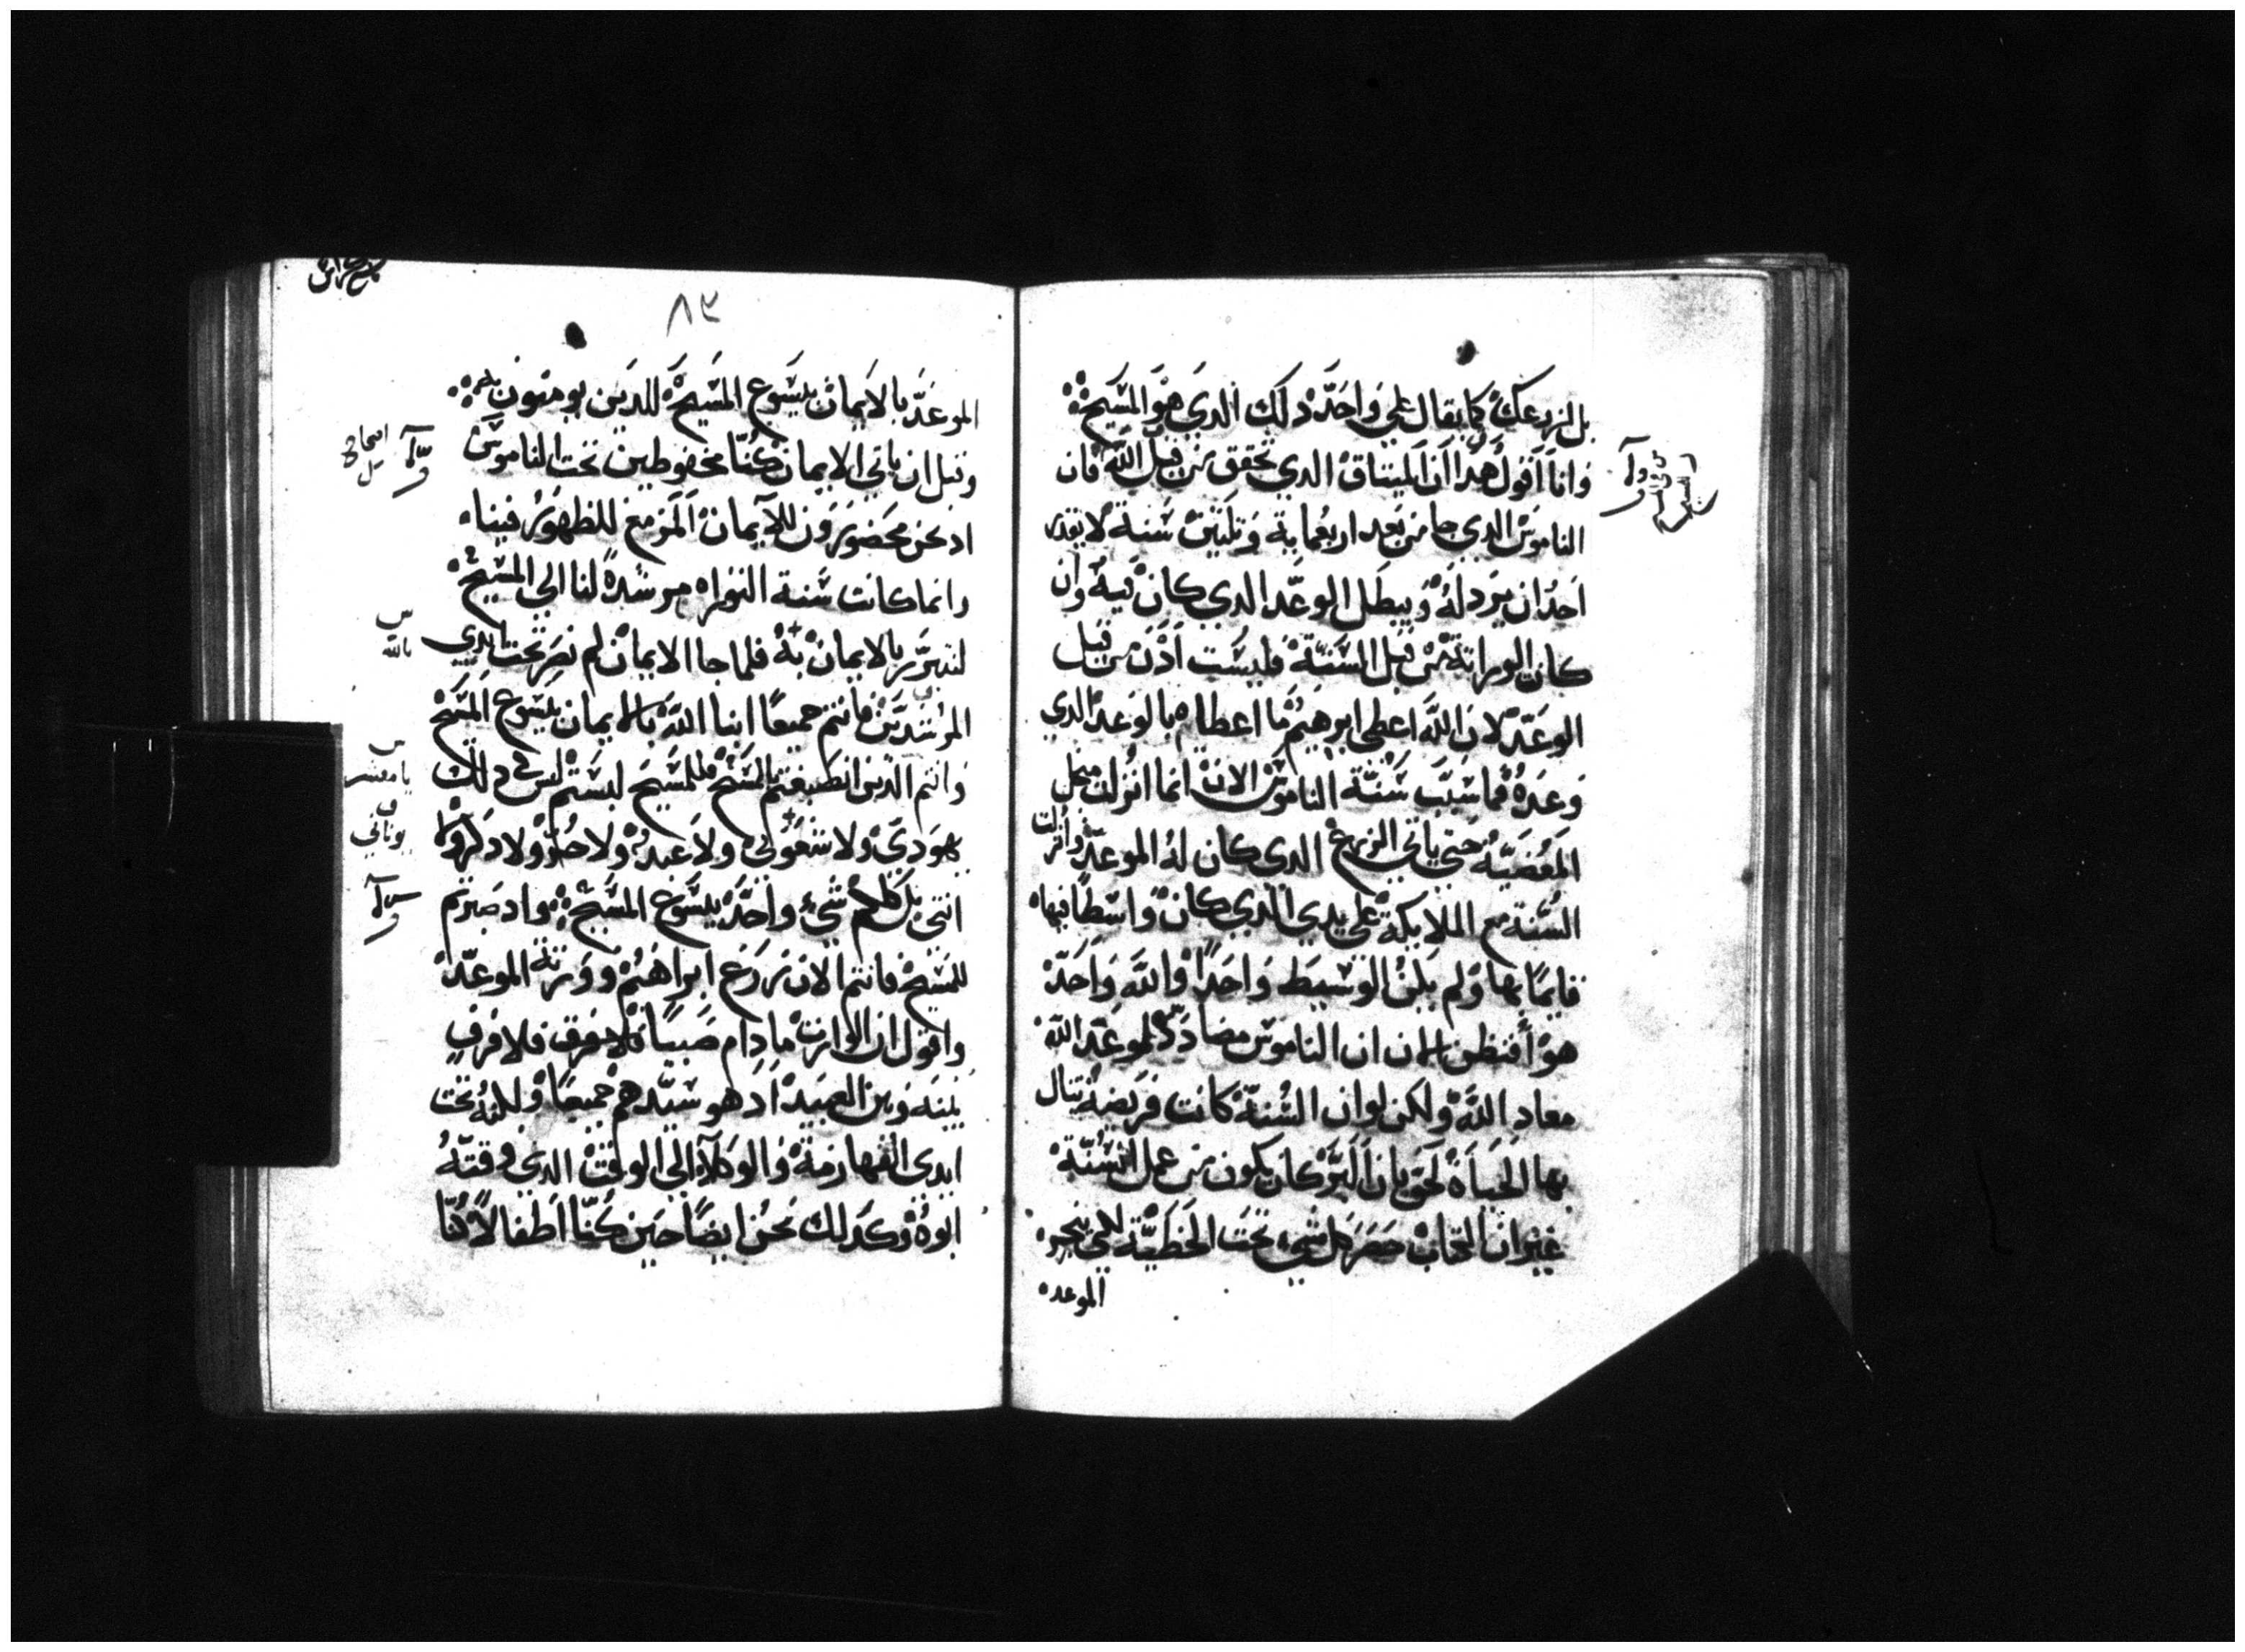 بل لزرعك كما يقال على واحد ذلك الدي هو المسيح
وانا اقول هدا ان الميتاق الدي تحقق من قبل الله فان
الناموس الدي جا من بعد اربعماية وتلتين سنة لا يقدر
احد ان يرذله ويبطل الوعد الدي كان فيه وان
كان الوراتة من قبل السنة فليست ادن من قبل
الوعد لان الله اعطى ابرهيم ما اعطاه بالوعد الدي
وعده فما سبب سنة الناموس الان انما انزلت من اجل
المعصية حتى ياتي الزرع الدي كان له الموعد وانزلت
السنة مع الملايكة على يدي الدي كان واسطا فيها
قايما بها ولم يكن الوسيط واحدا والله واحد
هو أفتظن الان ان الناموس مضادد لموعد الله
معاد الله ولكن لو ان السنة كانت فريضة تنال
بها الحياة لحق بان البر كان يكون من عمل السنة
غير ان الكتاب حصر كل شي تحت الخطية لكي ينجو
الموعد
٨٢
الموعد بالايمان بيسوع المسيح للدين يومنون به
وقبل ان ياتي الايمان كنا محفوظين تحت الناموس
اد نحن محصورون للايمان المزمع للظهور فينا
وانما كانت سنة التوراه مرشدة لنا الى المسيح
لنتبرر بالايمان به فلما جا الايمان لم نصر تحت ايدي
المرشدين فانتم جميعا ابنا الله بالايمان بيسوع المسيح
وانتم الدين انصبغتم بالمسيح فللمسيح لبستم ليس في ذلك
يهودي ولا شعوبي ولا عبد ولا حر ولا دكر ولا
انتى بل كلكم شي واحد بيسوع المسيح واد صرتم
للمسيح فانتم الان زرع ابراهيم وورتة الموعد
واقول ان الوارت ما دام صبيا فلا فرق
بينه وبين العبيد اد هو سيدهم جميعا ولكنه تحت
ايدي القهارمة والوكلا الى الوقت الدي وقته
ابوه وكدلك نحن ايضا حين كنا اطفالا كنا
بالله
يا معشر
يوناني